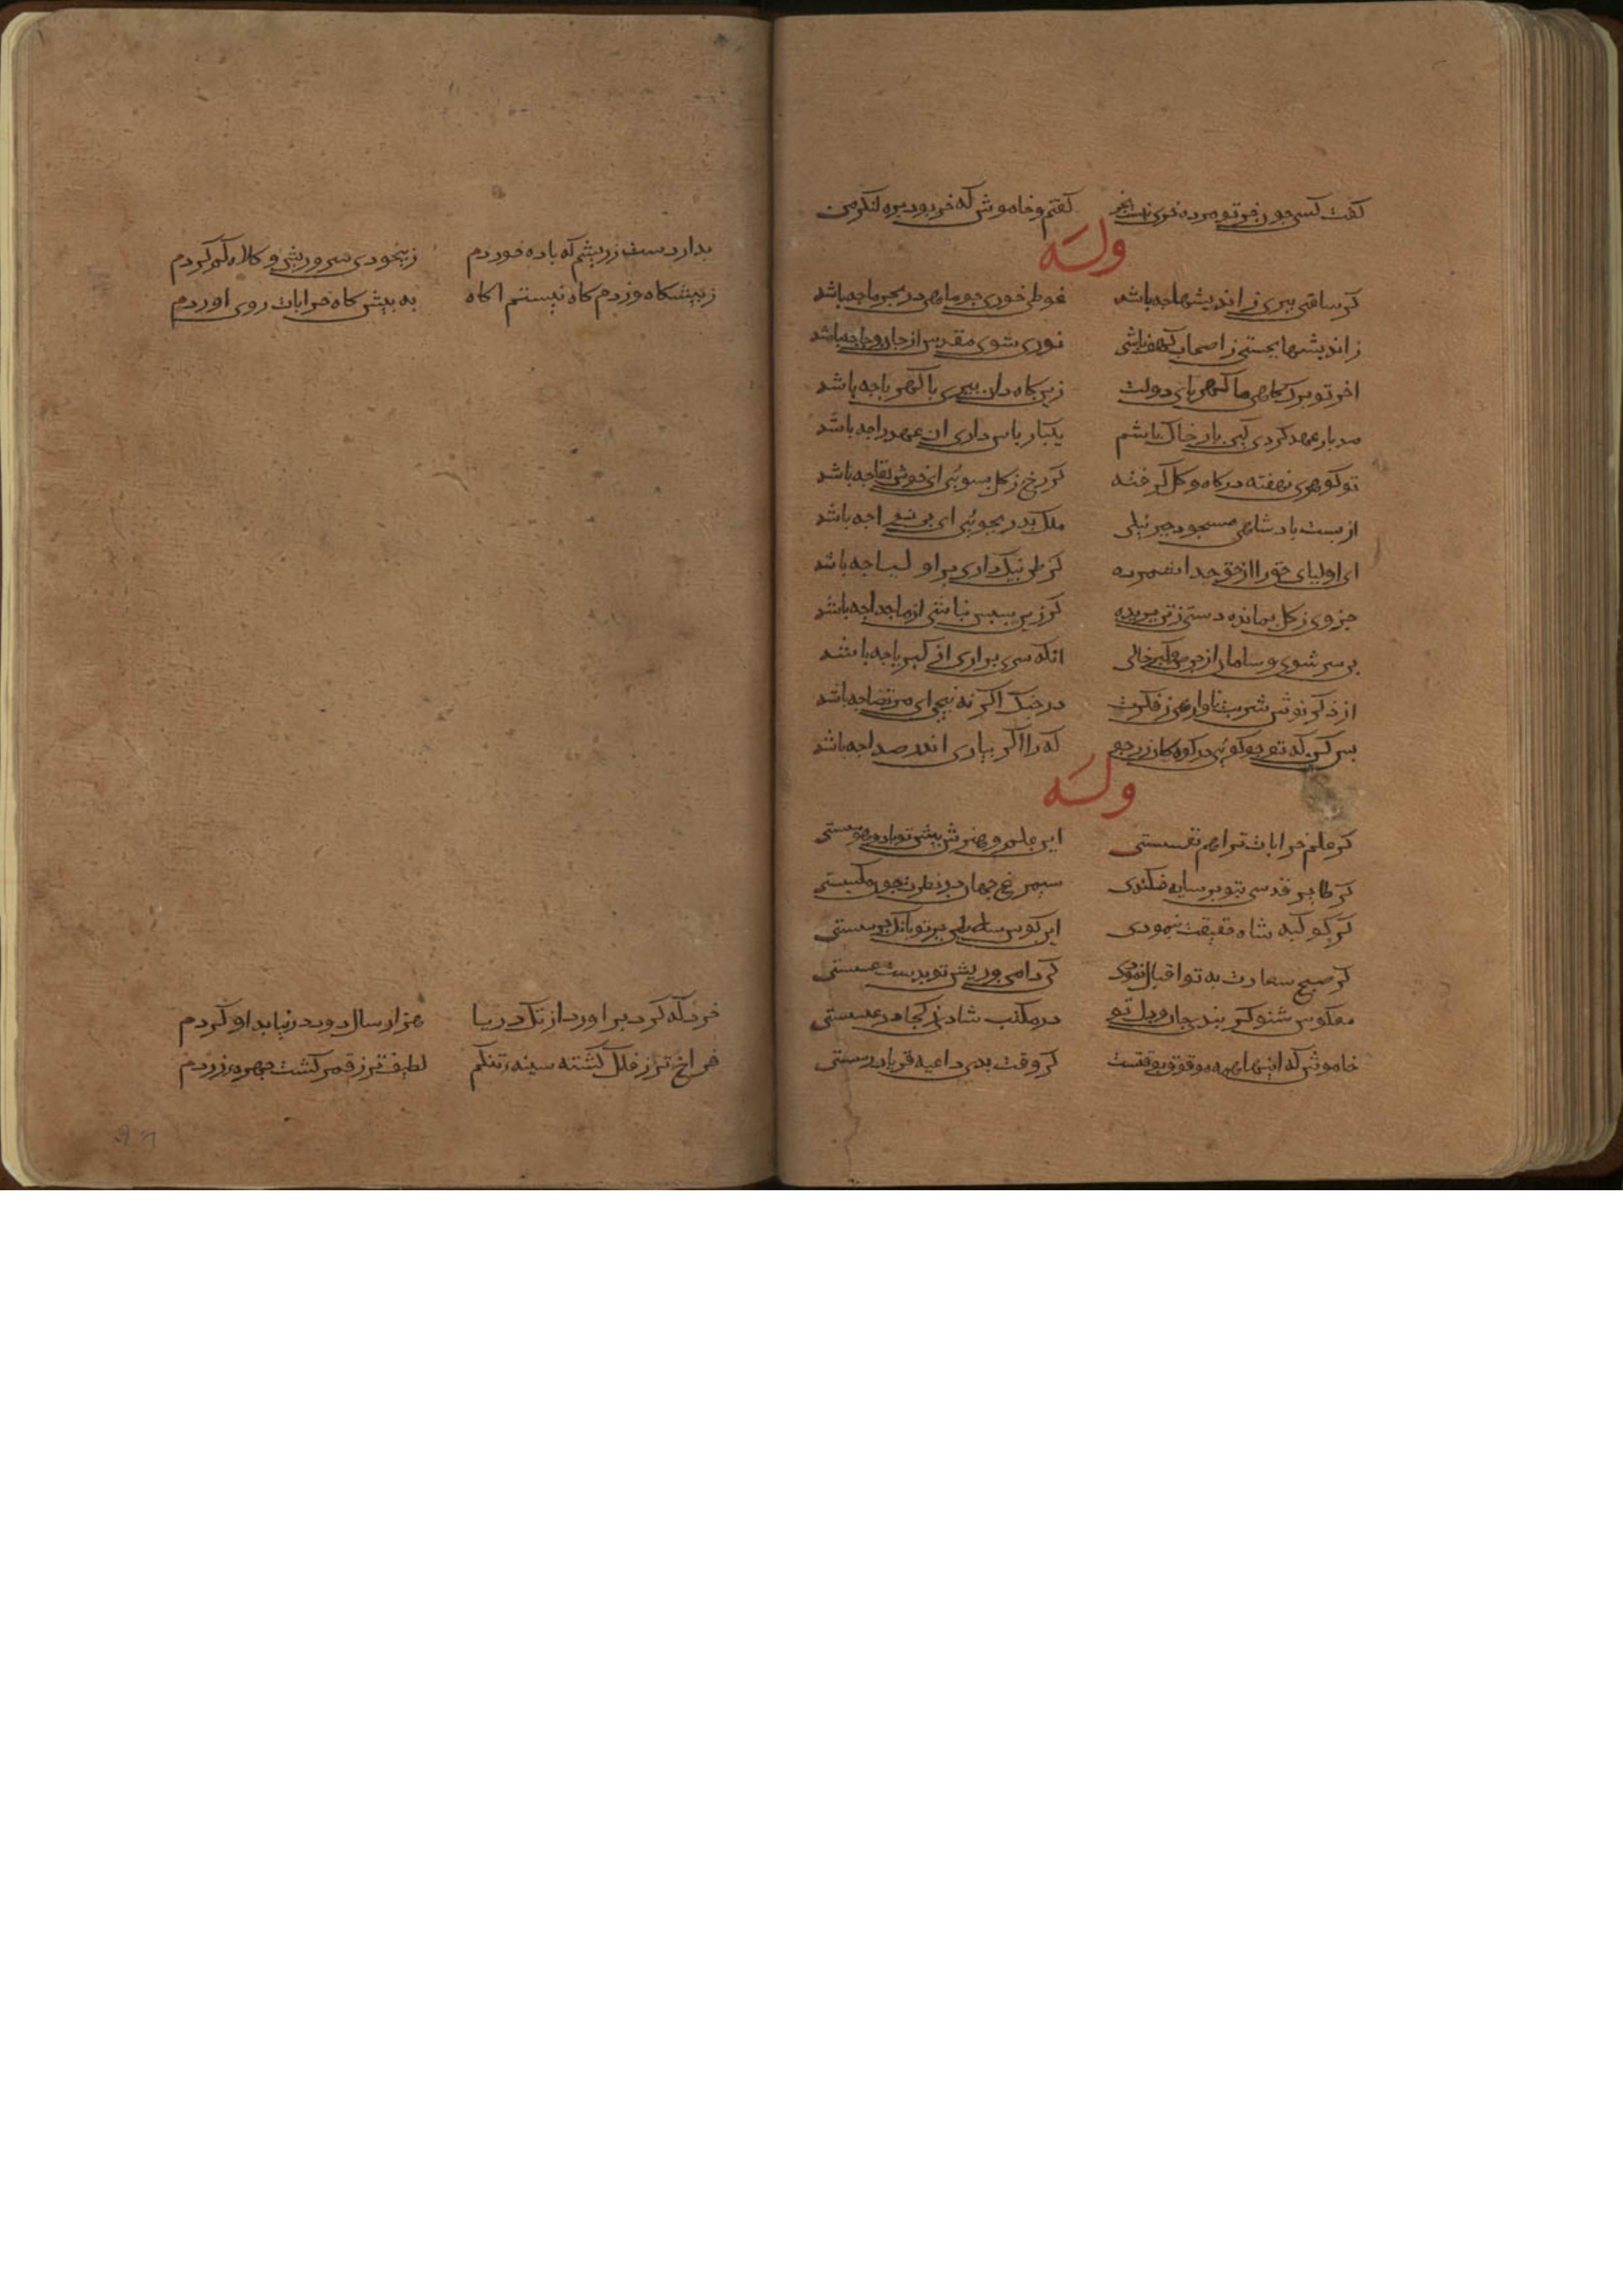 گفت کسی چون خر تو مرده خری هست بخر گفتم و خاموش که خر بود بره لنگر من
وله
گر ساقتی ببری ز اندیشها چه باشد غوطی خوری چو ماهی در بحر ما چه باشد
ز اندیشها بخسبی ز اصحاب کهف باشی نوری شوی مقدس از جان و جا چه باشد
اخر تو برک کاهی ما کهربای دولت زین کاه دان ببری با کهربا چه باشد
صد بار عهد کردی کین بار خاک باشم یکبار پاس داری ان عهد را چه باشد
تو کوهری نهفته در کاه و کل کرفته کر رخ ز کل بشویی ای خوش لقا چه باشد
از پشت پادشاهی مسجود جبرئیلی ملک پدر بجویی ای بی نوا چه باشد
ای اولیای حق را از حق جدا شمرده کر ظن نیک داری بر اولیا چه باشد
جزوی ز کل بمانده دستی ز تن بریده کر زین سپس نباشی از ما جدا چه باشد
بی سر شوی و سامان از حرص و کبر خالی انکه سری براری از کبریا چه باشد
از ذکر نوش شربت تا وارهی ز فکرت در جنک اکر نه پیچی ای مرتضا چه باشد
بس کن که تو چو کوهی در کوه کان زر جو که را اکر بیاری اندر صدا چه باشد
وله
کر علم خرابات ترا هم نفسستی این علم و هنرش پیش تو باد و هوسستی
کر طایر قدسی بتو بر سایه فکندی سیمرغ جهان در نظرت چون مکسستی
کر کوکبه شاه حقیقت بنمودی این کوس سلاطین بر تو بانک جرسستی
کر صبح سعادت به تو اقبال نمودی کی دامن و ریش تو بدست عسستی
معکوس شنو کر بند جان و دل تو در مکتب شادی ز کجا در عبسستی
خاموش که اینها همه موقوف بوقتست کر وقت بدی داعیه فریاد رسستی
بدار دست ز ریشم که باده خوردم ز بیخودی سر و ریش و کلاه کم کردم
ز پیشکاه و ز درکاه نیستم اکاه به پیش کاه خرابات روی اوردم
خرد که کرد براورد از تک دریا هزار سال دود در نیابد او کردم
فراخ تر ز فلک کشته سینه تنکم لطیف تر ز قمر کشت چهره زردم